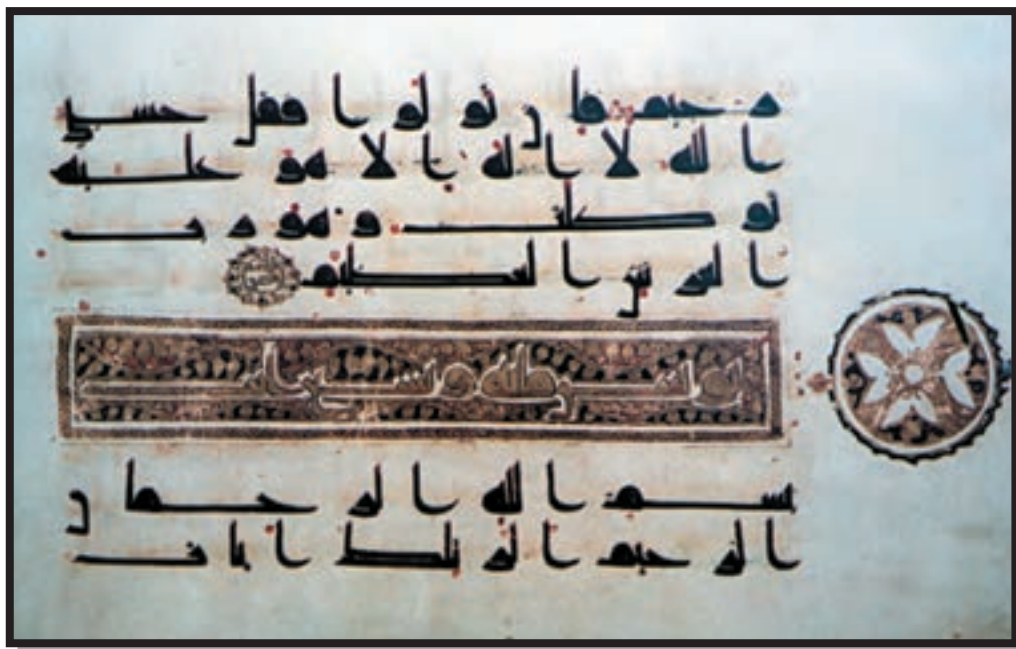 رحيم فان تولوا فقل حسبي
الله لا اله الا هو عليه
توكلت وهو رب
العرش العظيم
يونس مائة وتسع ايات
بسم الله الرحمن
الرحيم الر تلك ايات